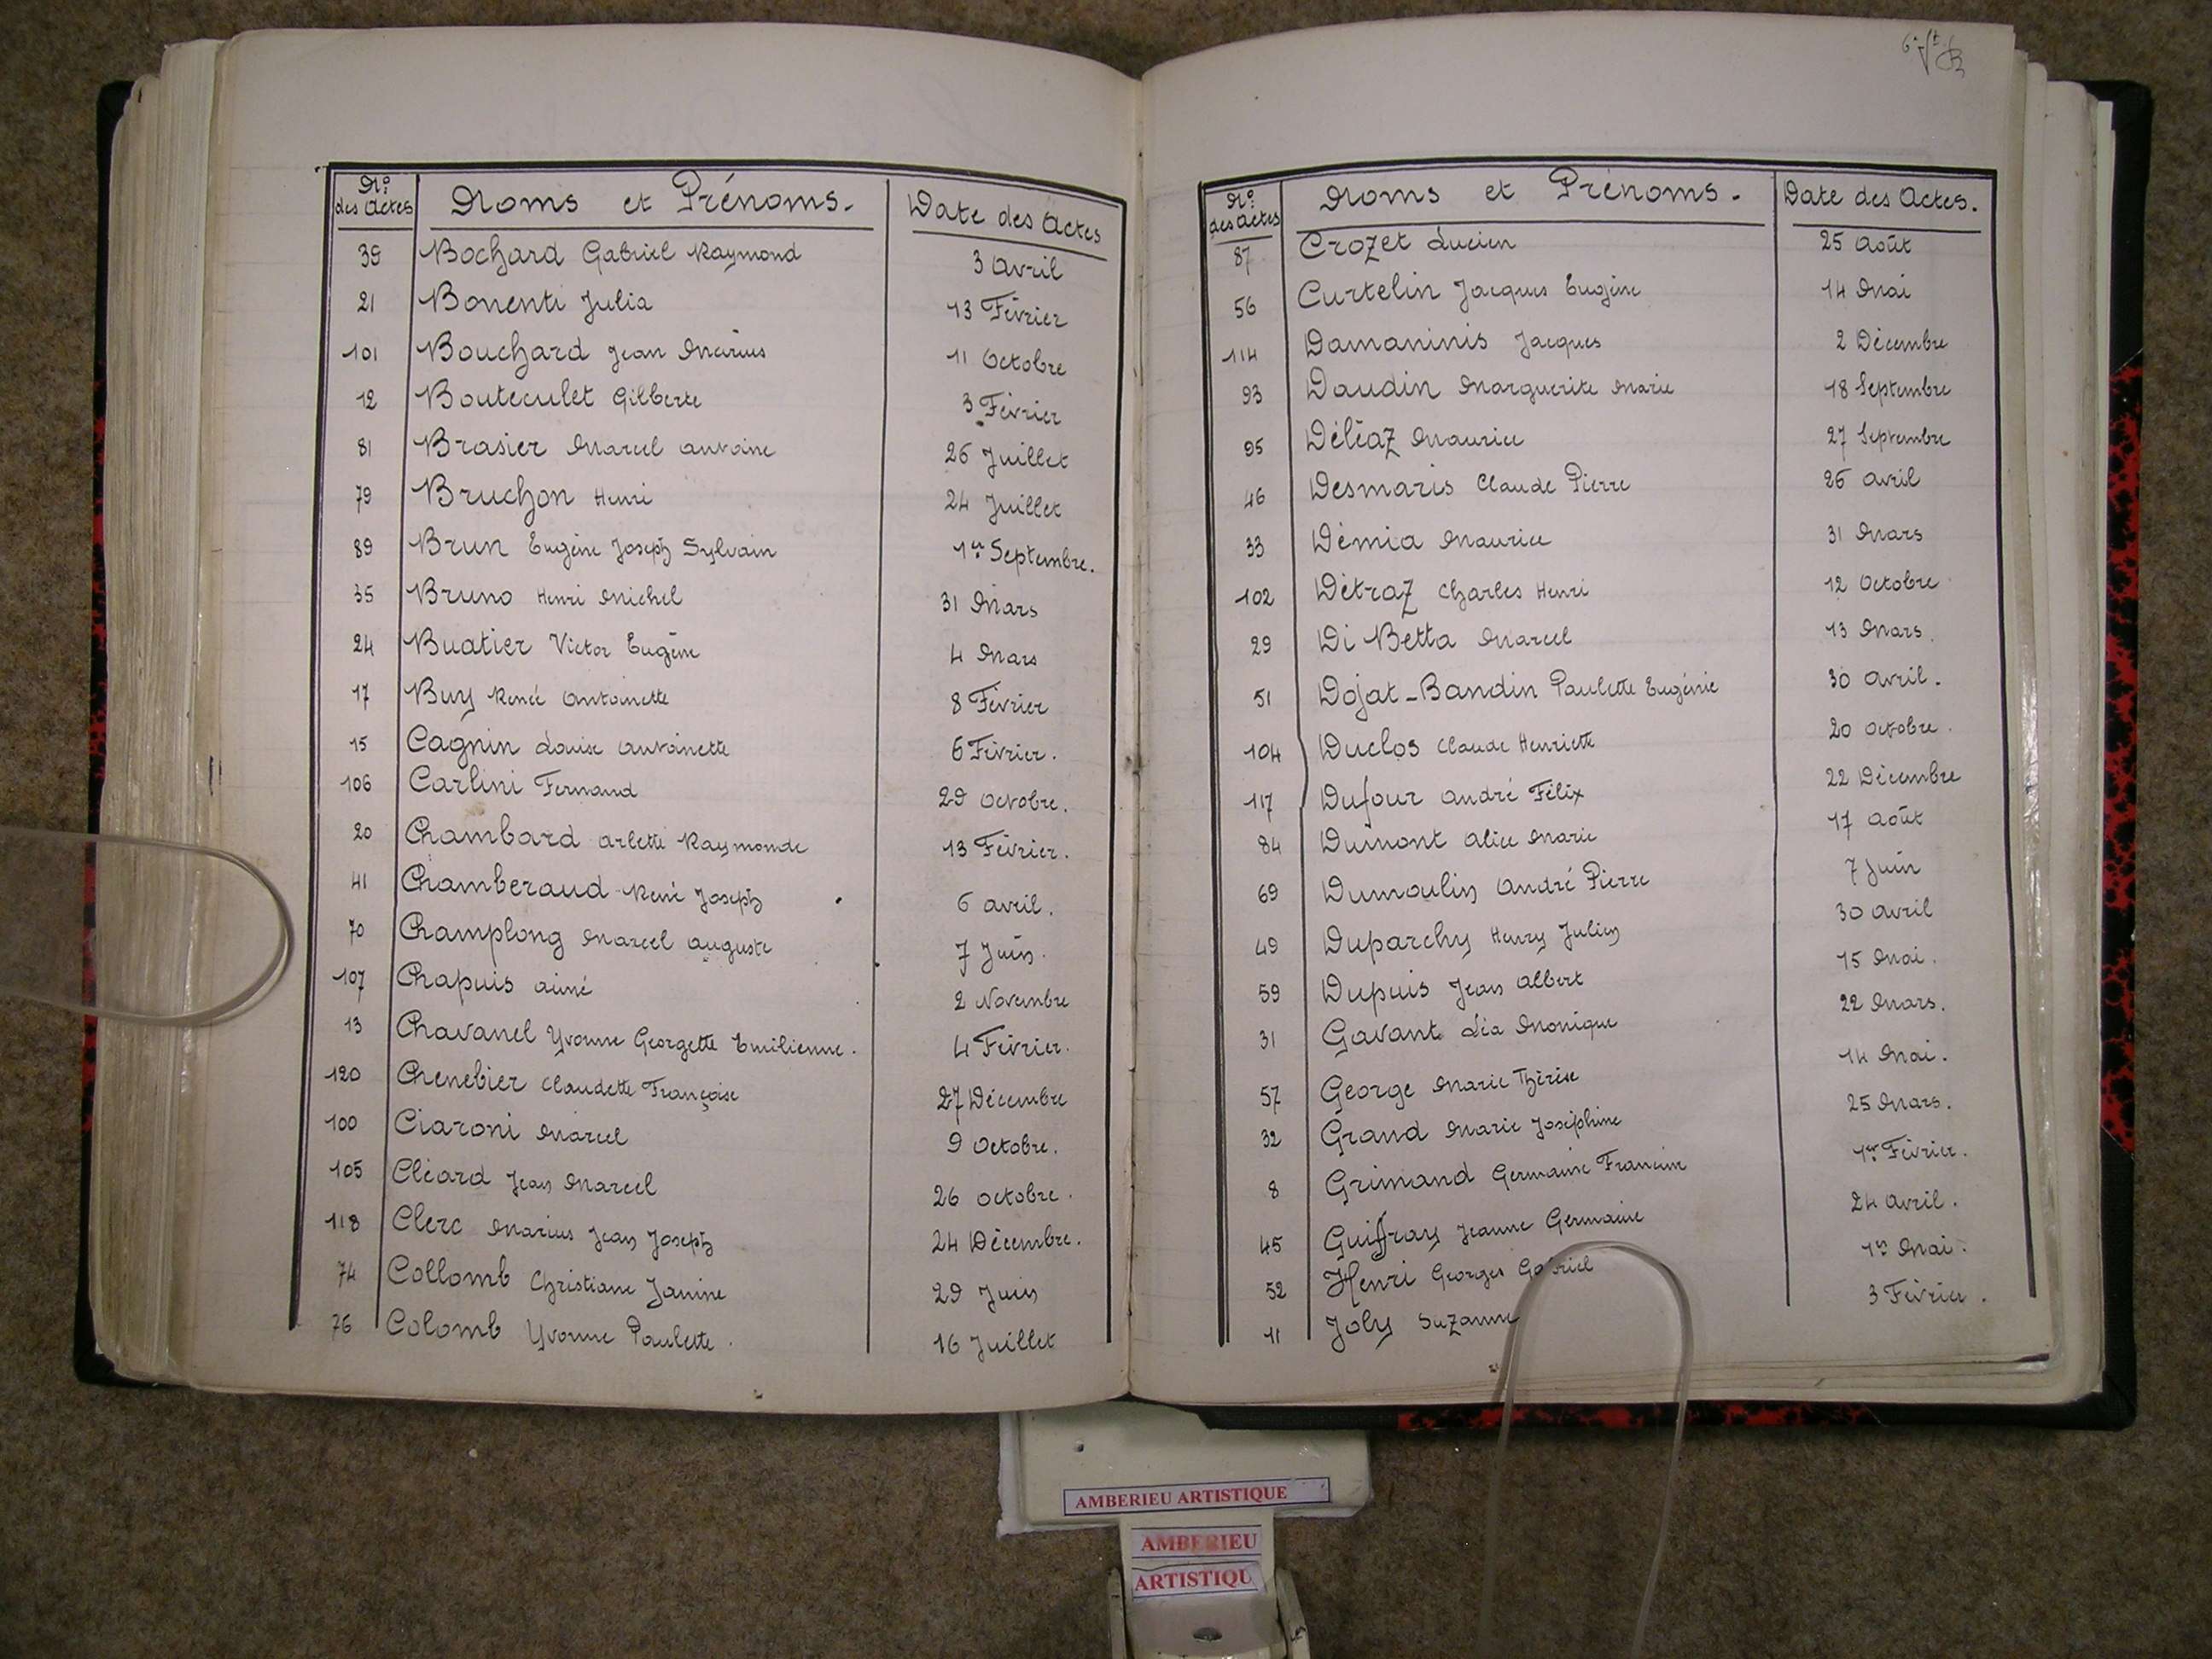 Nos des Actes Noms et Prénoms. Date des Actes
39 Bochard Gabriel Raymond 3 Avril
21 Bonenti Julia 13 Février
101 Bouchard Jean Marius 11 Octobre
12 Bouteculet Gilberte 3 Février
81 Brasier Marcel Antoine 26 Juillet
79 Bruchon Henri 24 Juillet
89 Brun Eugène Joseph Sylvain 1er Septembre.
35 Bruno Henri Michel 31 Mars
24 Buatier Victor Eugène 4 Mars
17 Buy Renée Antoinette 8 Février
15 Cagnin Louise Antoinette 6 Février.
106 Carlini Fernand 29 Octobre.
20 Chambard Arlette Raymonde 13 Février.
41 Chamberaud René Joseph 6 Avril.
70 Champlong Marcel Auguste 7 Juin.
107 Chapuis Aimé 2 Novembre
13 Chavanel Yvonne Georgette Emilienne. 4 Février.
120 Chenebier Claudette Françoise 27 Décembre
100 Ciaroni Marcel 9 Octobre.
105 Cléard Jean Marcel 26 Octobre.
118 Clerc Marius Jean Joseph 24 Décembre.
74 Collomb Christiane Janine 29 Juin
76 Colomb Yvonne Paulette. 16 Juillet
Nos des Actes Noms et Prénoms. Date des Actes.
87 Crozet Lucien 25 Août
56 Curtelin Jacques Eugène 14 Mai
114 Damaninis Jacques 2 Décembre
93 Daudin Marguerite Marie 18 Septembre
95 Déléaz Maurice 27 Septembre
46 Desmaris Claude Pierre 26 Avril
33 Démia Maurice 31 Mars
102 Détraz Charles Henri 12 Octobre
29 Di Betta Marcel 13 Mars.
51 Dojat-Bandin Paulette Eugénie 30 Avril.
104 Duclos Claude Henriette 20 Octobre.
117 Dufour André Félix 22 Décembre
84 Dumont Alice Marie 17 Août
69 Dumoulin André Pierre 7 Juin
49 Duparchy Henry Julien 30 Avril
59 Dupuis Jean Albert 15 Mai.
31 Gavant Léa Monique 22 Mars.
57 George Marie Thérèse 14 Mai.
32 Grand Marie Joséphine 25 Mars.
8 Grimand Germaine Francine 1er Février.
45 Guiffray Jeanne Germaine 24 Avril.
52 Henri Georges Gabriel 1er Mai.
11 Joly Suzanne 3 Février.
AMBERIEU ARTISTIQUE
AMBERIEU
ARTISTIQU